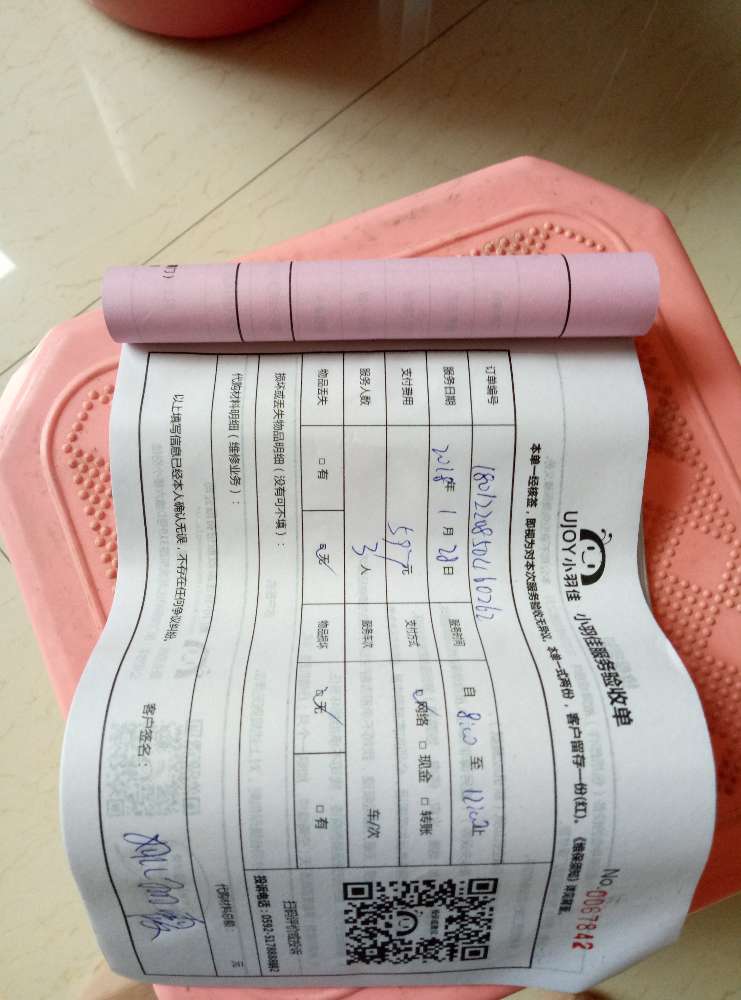 UJOY小羽佳 小羽佳服务验收单
No.0067842
本单一经核签，即视为对本次服务验收无异议，本单一式两份，客户留存一份(红)。《维保须知》详见背面。
订单编号
服务日期 2018年 1月 28日 服务时间 自 8:00 至 12:00止
支付费用 597元 支付方式 网络 □ 现金 □ 转账
服务人数 3人 服务车次 车/次
物品丢失 □ 有 无 物品损坏 无 □ 有
损坏或丢失物品明细（没有可不填）：
扫码评价或投诉
代购材料明细（维修业务）： 代购材料总额： 元
以上填写信息已经本人确认无误，不存在任何争议纠纷。
客户签名：